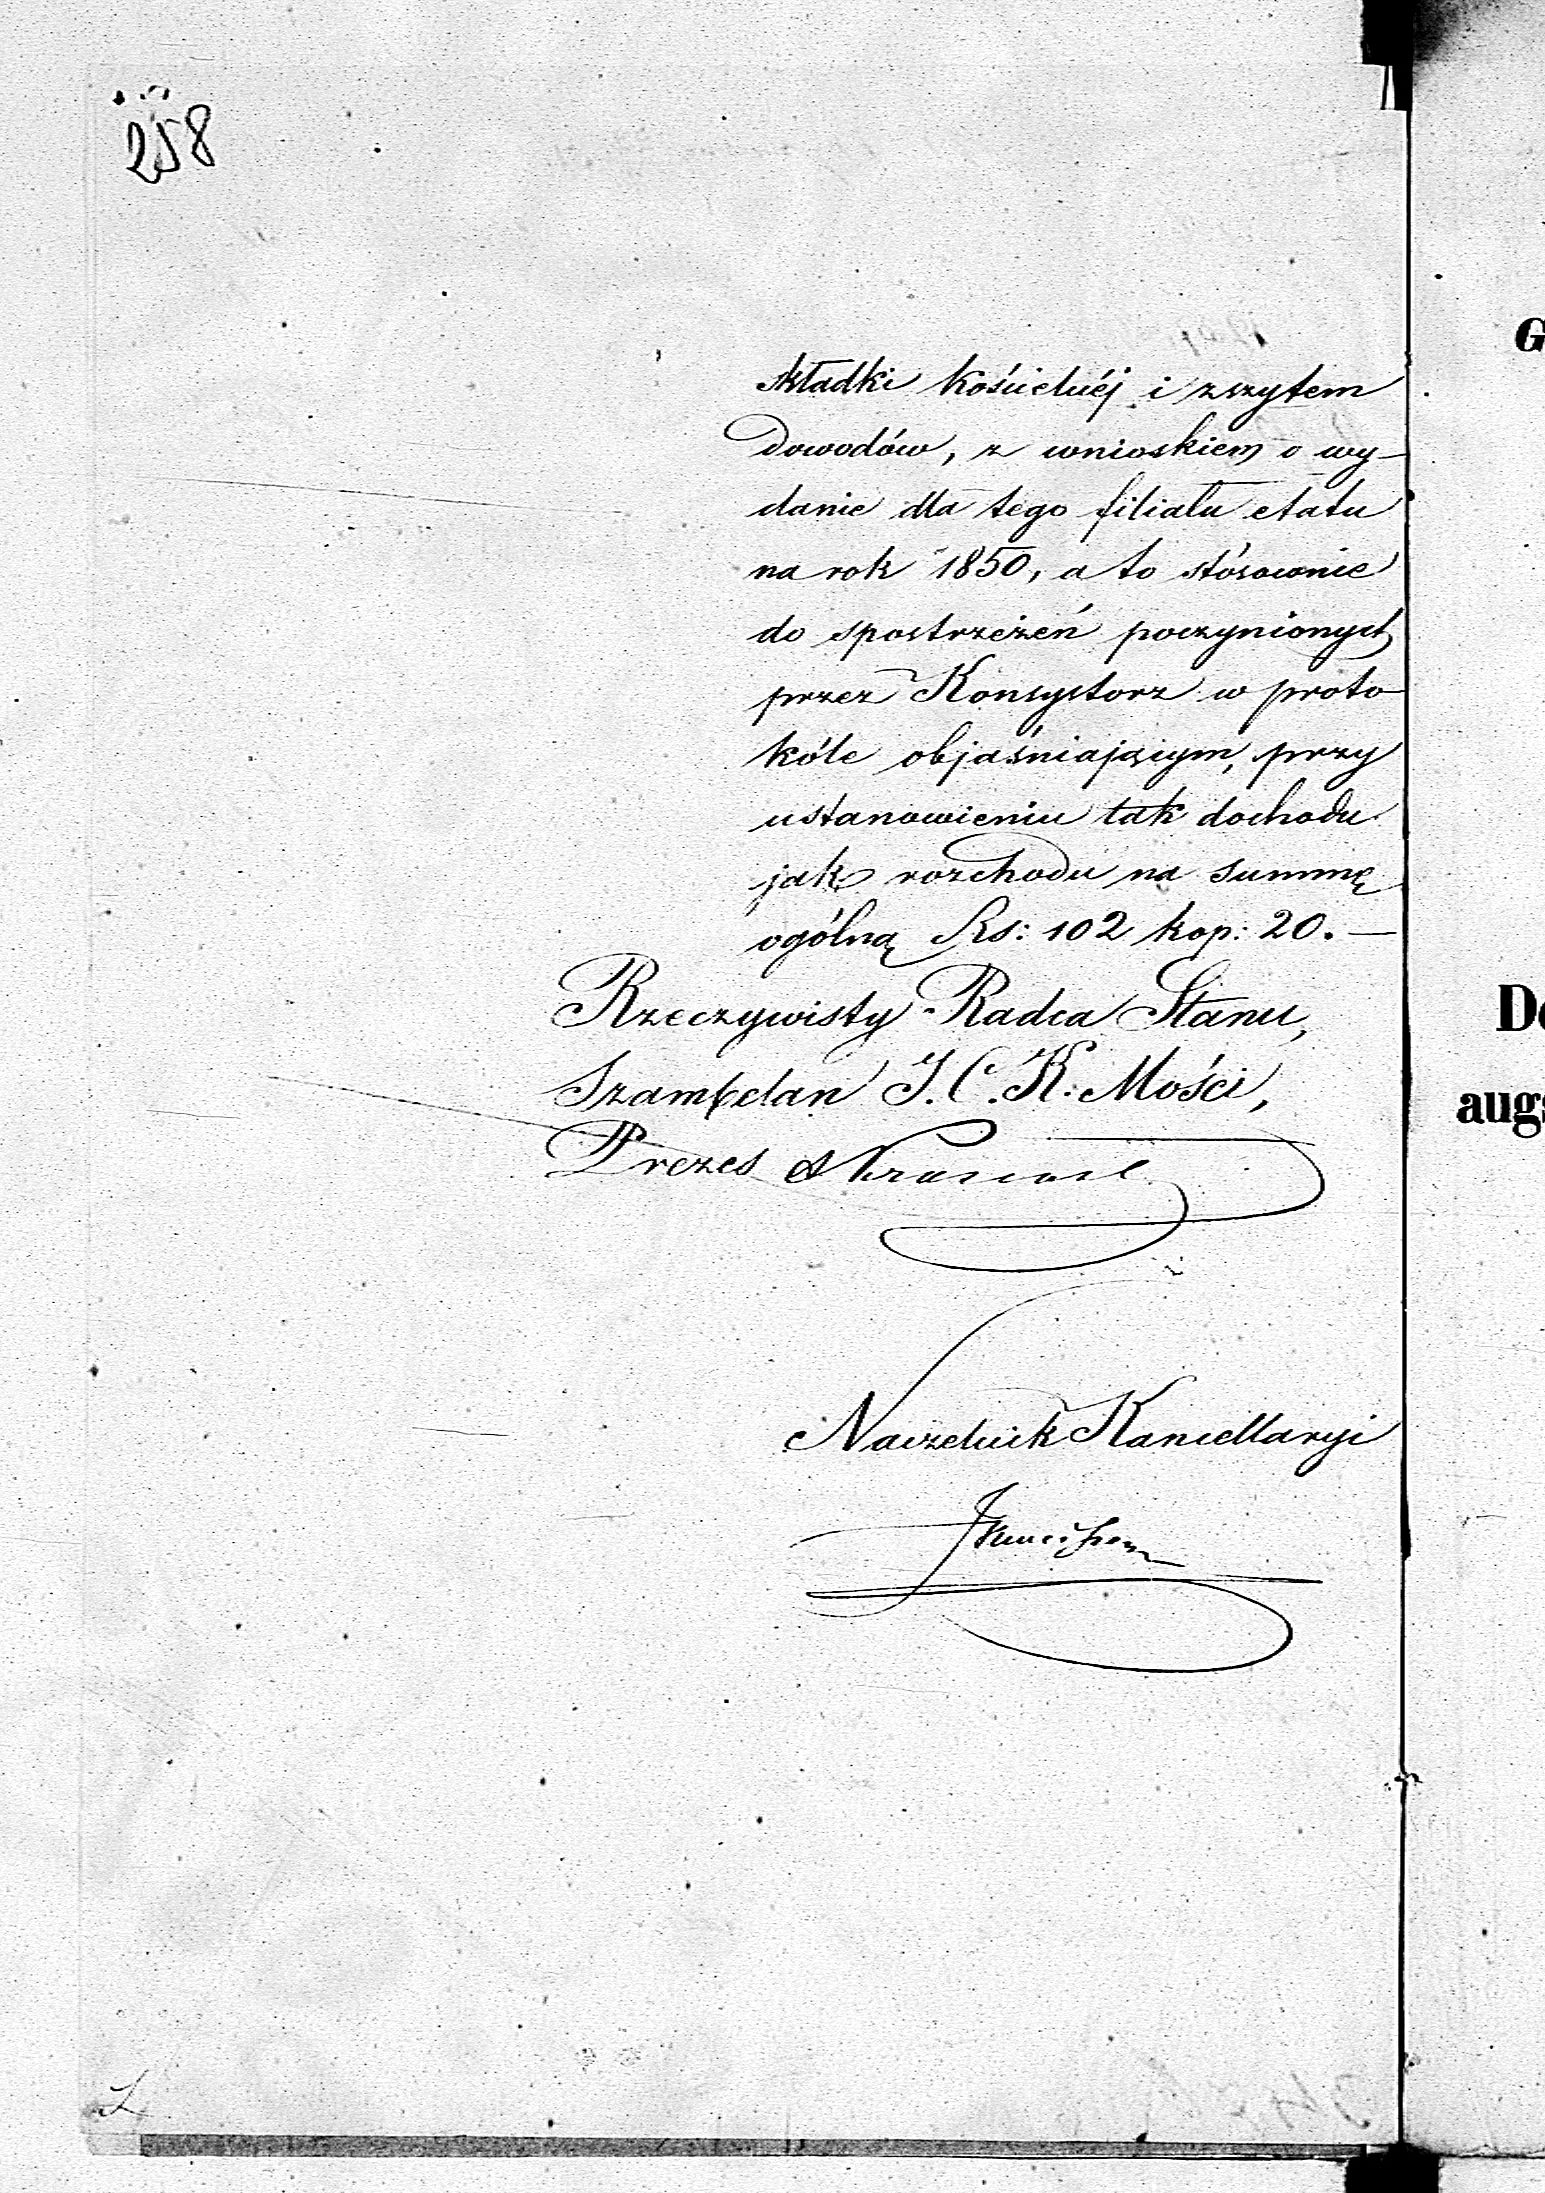 258
składki kościelnéj i zszytem
Dowodów, z wnioskiem o wy-
danie dla tego filiału etatu
na rok 1850, a to stósownie
do spostrzeżeń poczynionych
przez Konsystorz w proto
kóle objaśniającym, przy
ustanowieniu tak dochodu
jak rozchodu na summę
ogólną Rs: 102 kop: 20. —
Rzeczywisty Radca Stanu,
Szambelan J. C. K. Mości,
Prezes
Naczelnik Kancellaryi
G
De
augs